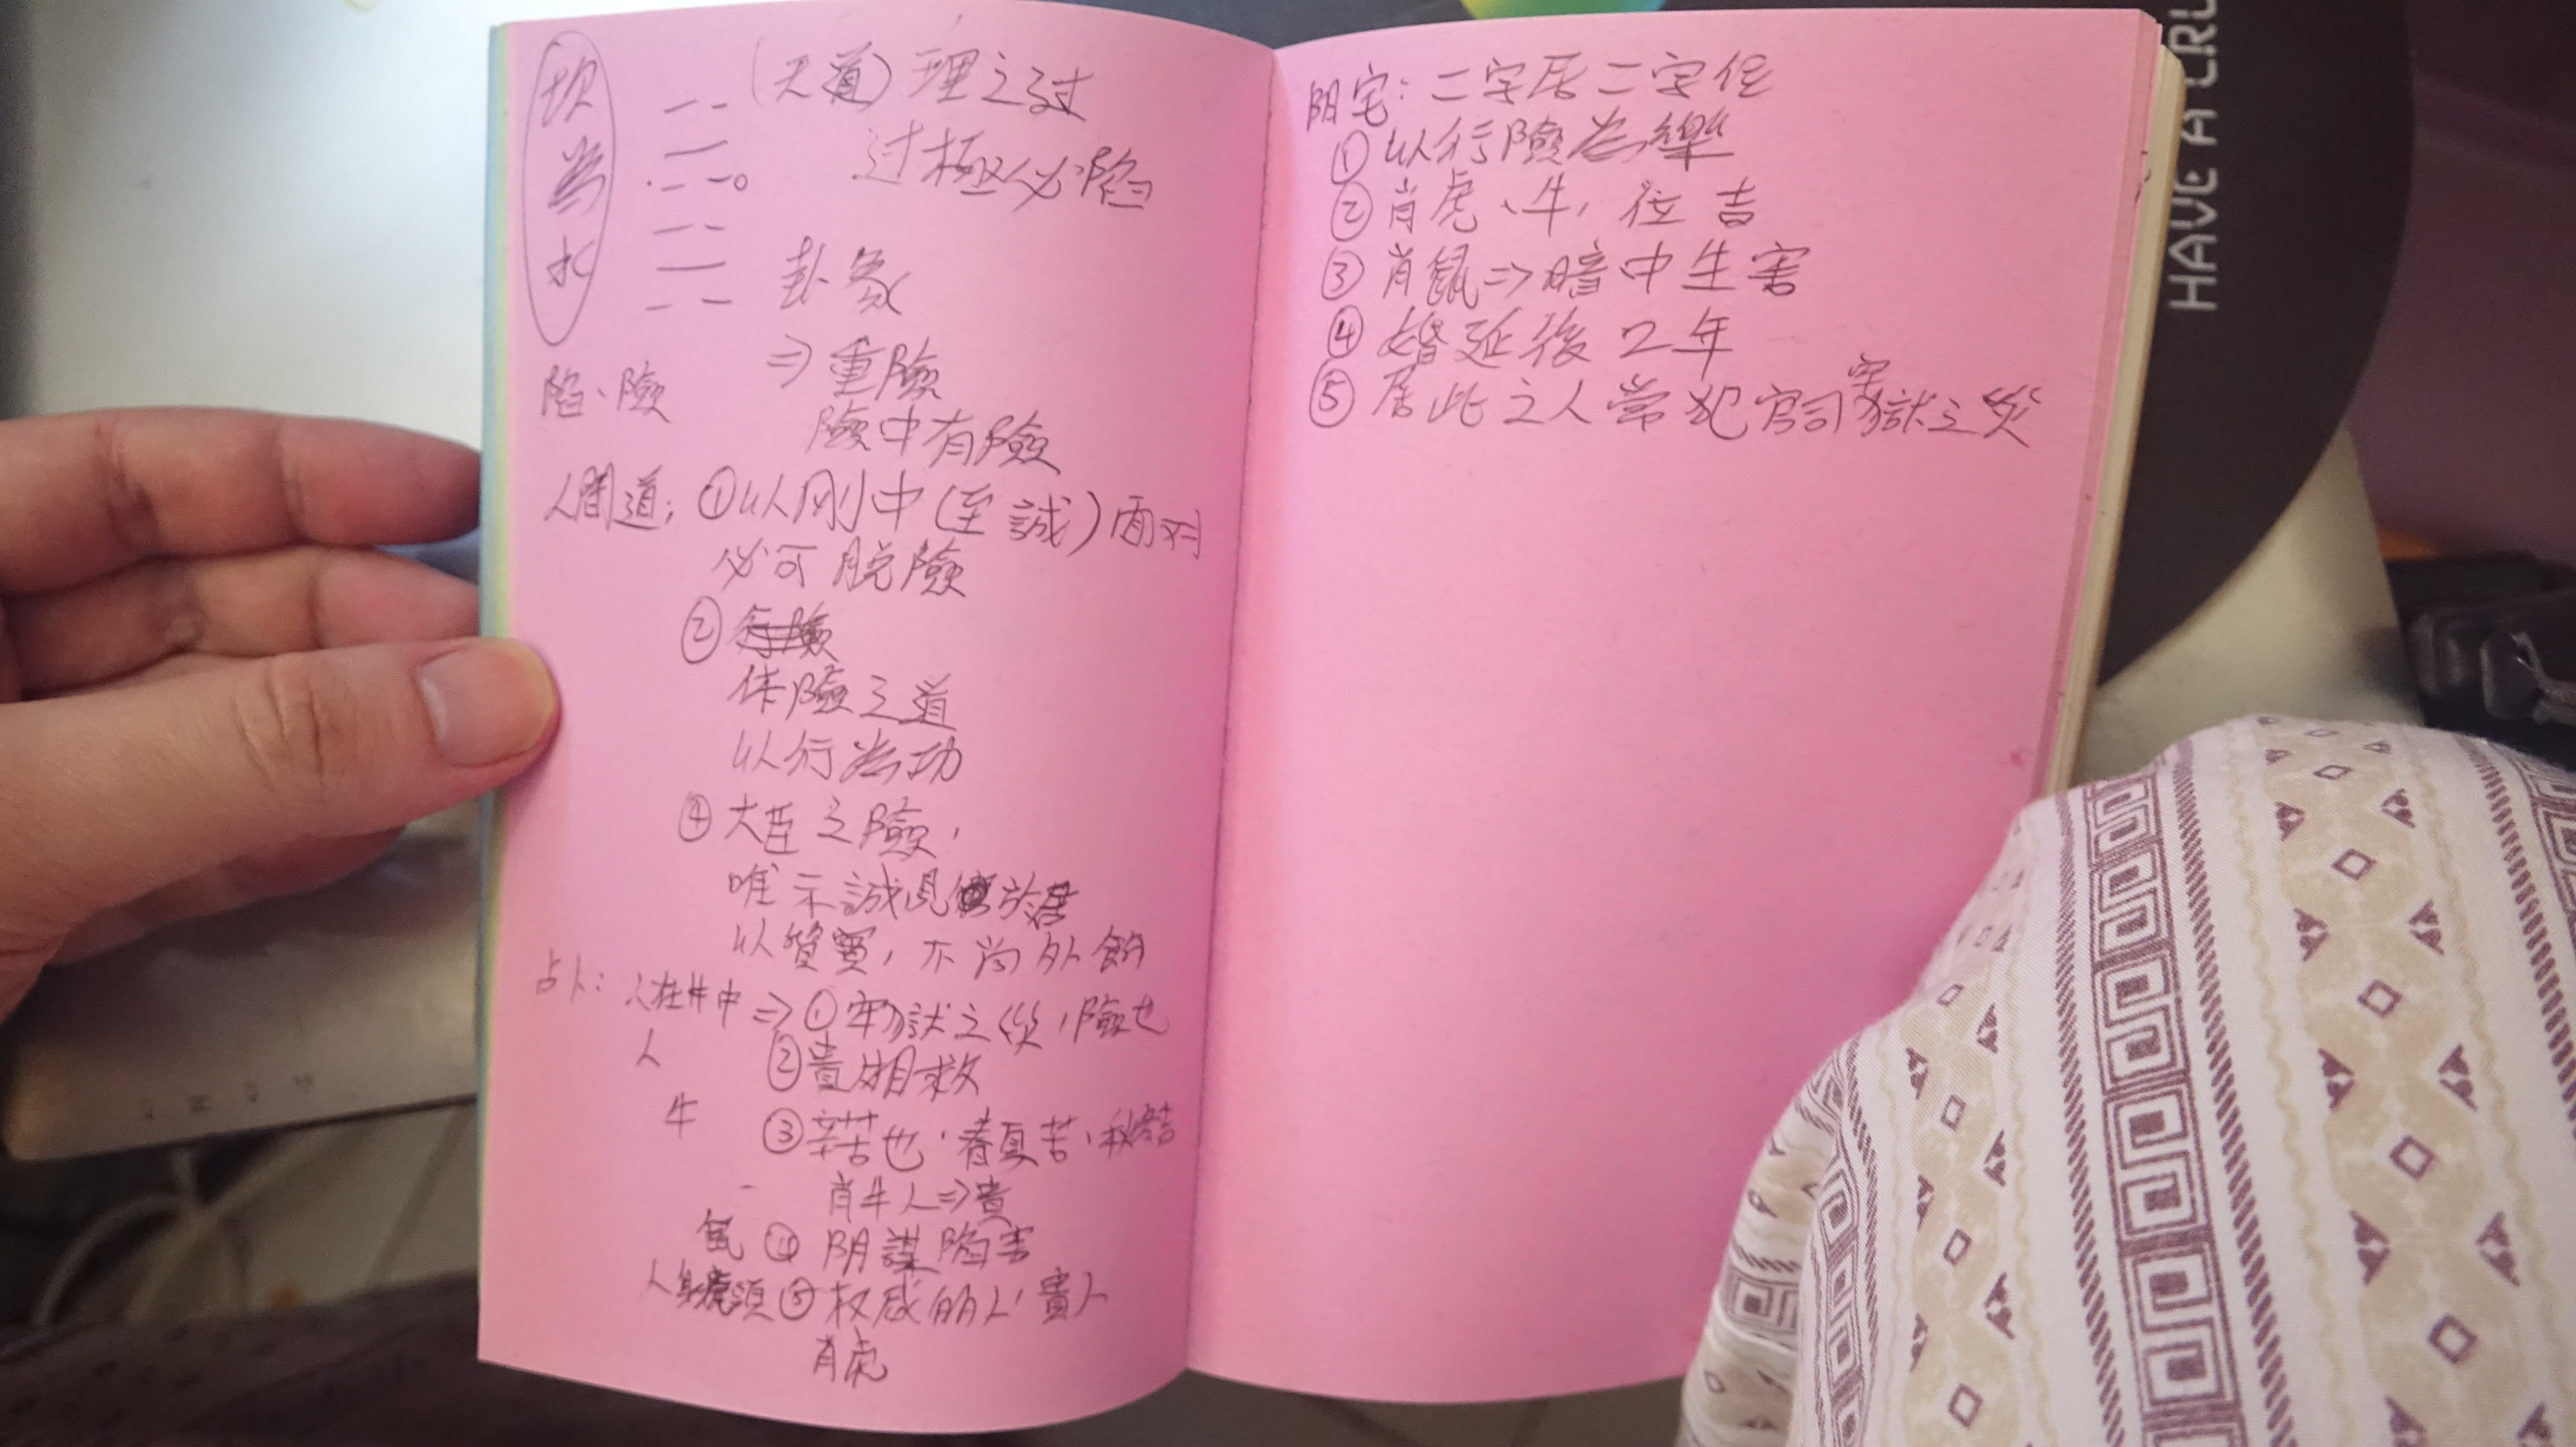 坎為水
(天道)理之过
过極必陷
卦象
⇒重險
陷、險
險中有險
人間道：①以刚中(至誠)面对
必可脱險
②行險
体險之道
以行為功
④大臣之險，
唯示誠見於君
以質實，不尚外飾
占卜：人在井中⇒①牢獄之災，險也
人 ②貴相救
牛 ③辛苦也，春夏苦，秋冬吉
肖牛人⇒貴
鼠④阴謀陷害
人身虎頭⑤权威的人，貴人
肖虎
阴宅：二字居二字任
①以行險為樂
②肖虎、牛，位吉
③肖鼠⇒暗中生害
④婚延後2年
⑤居此之人常犯官司牢獄之災
HAVE A